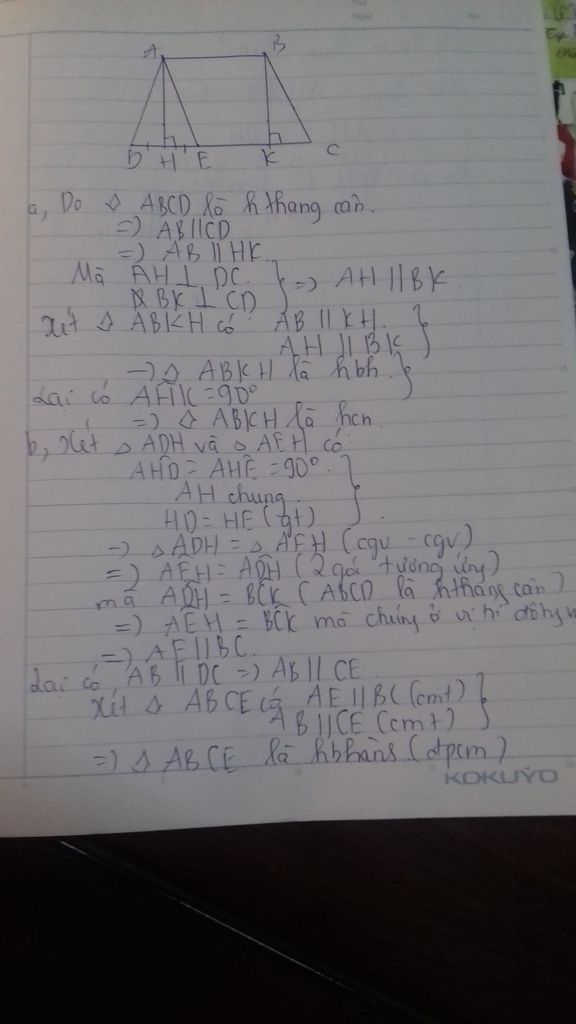 A B
D H E K C
a, Do ◊ ABCD là hthang cân.
=) AB//CD
=) AB // HK.
Mà AH ⊥ DC. } =) AH // BK.
BK ⊥ CD
Xét ◊ ABKH có AB // KH. }
AH // BK
=) ◊ ABKH là hbh. }
Lại có AĤK = 90°
=) ◊ ABKH là hcn.
b, Xét △ ADH và △ AEH có:
AĤD = AĤE = 90°. }
AH chung.
HD = HE (gt)
=) △ ADH = △ AEH (cgv - cgv)
=) AÊH = AD̂H (2 góc tương ứng)
mà AD̂H = BĈK (ABCD là hthang cân)
=) AÊH = BĈK mà chúng ở vị trí đồng v
=) AE // BC.
Lại có AB // DC =) AB // CE
Xét ◊ ABCE có AE // BC (cmt) }
AB // CE (cmt)
=) ◊ ABCE là hbhành (đpcm)
KOKUYO